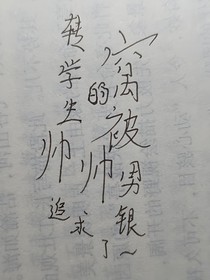 转学生
的窝被
帅帅男银
追求了~